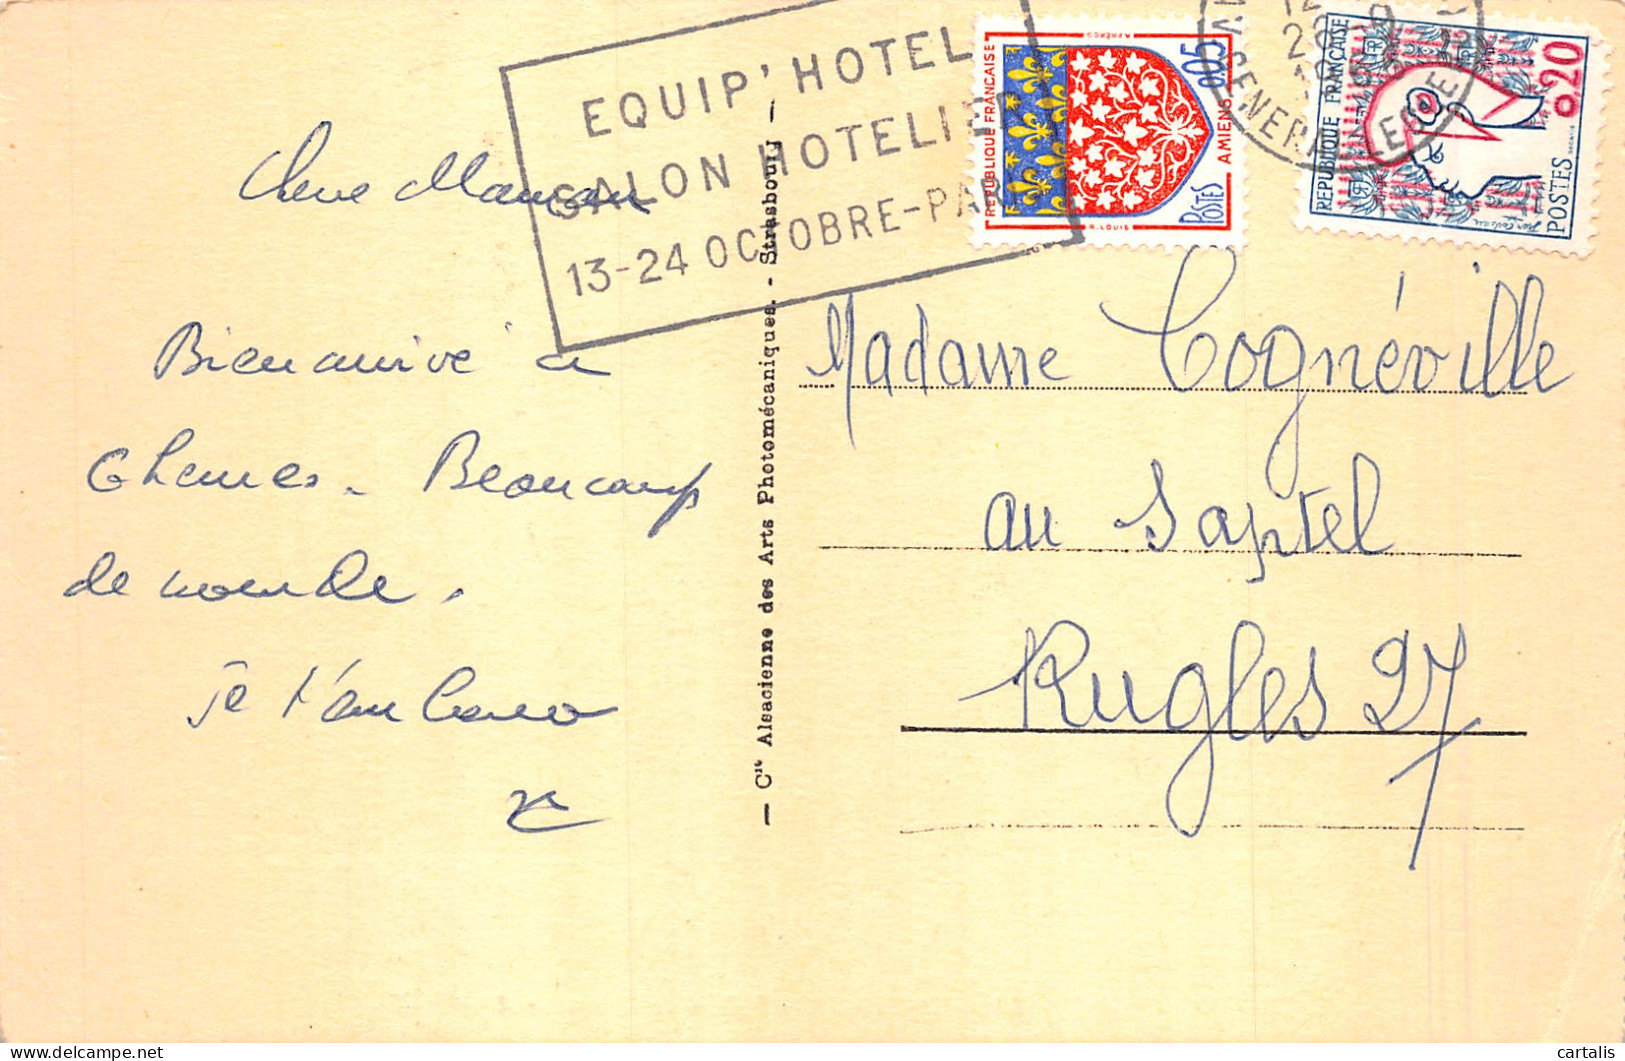 EQUIP' HOTEL
SALON HOTELIER
13-24 OCTOBRE-PARIS
REPUBLIQUE FRANÇAISE
0,05
AMIENS
POSTES
R. LOUIS
REPUBLIQUE FRANÇAISE
0,20
POSTES
Chere Maman
Bien arrivé à
Beaucoup
de monde.
Je t'embrasse
— Cie Alsacienne des Arts Photomécaniques. - Strasbourg —
Madame Cognéville
au Saptel
Rugles 27
cartalis